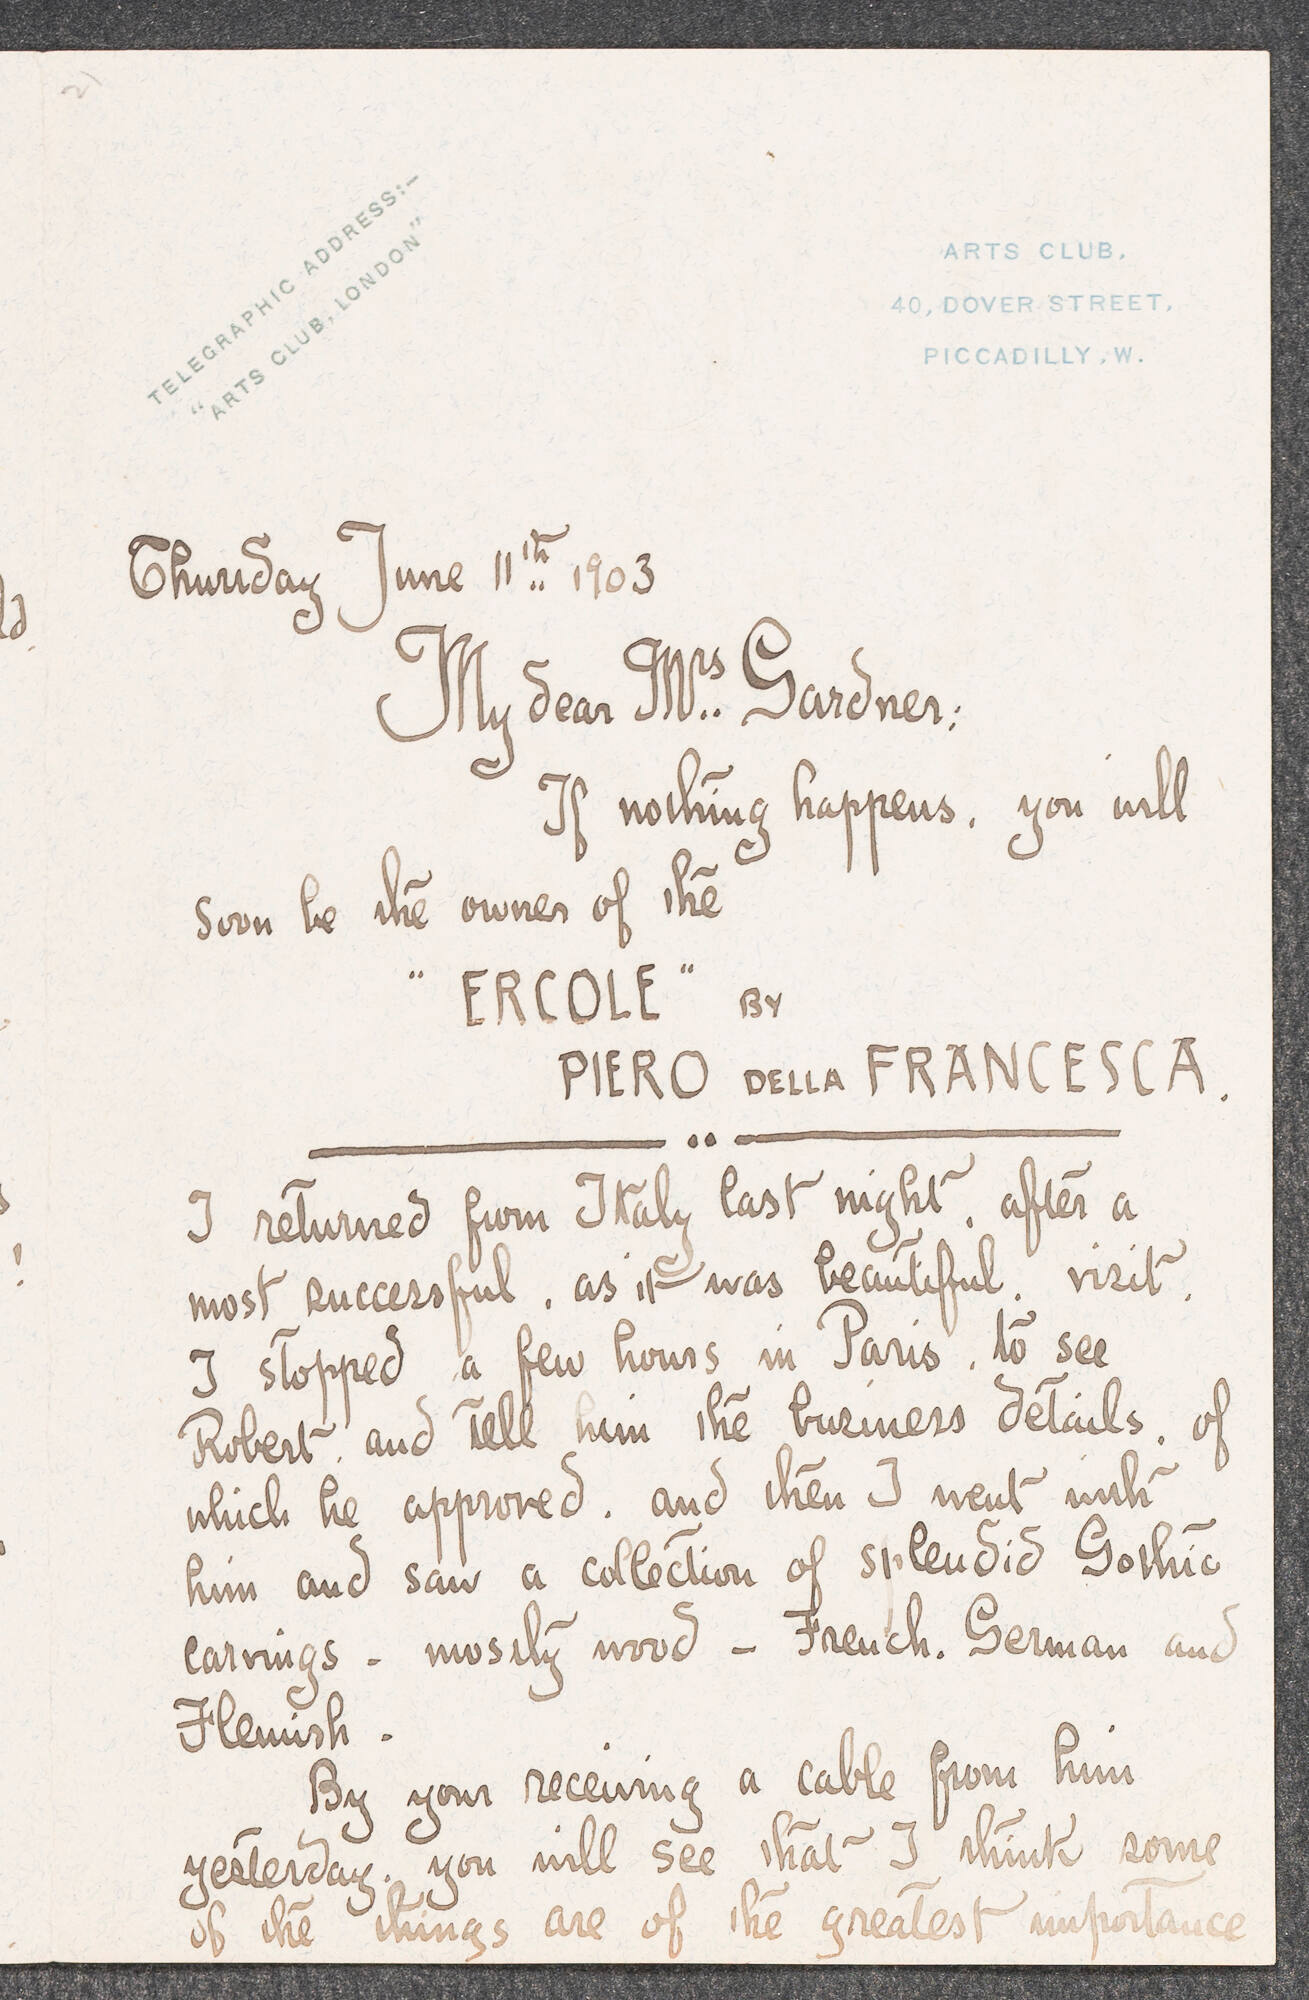 2)
TELEGRAPHIC ADDRESS:-
"ARTS CLUB, LONDON"
ARTS CLUB,
40, DOVER STREET,
PICCADILLY, W.
Thursday June 11th 1903
My dear Mrs. Gardner:
If nothing happens, you will
soon be the owner of the
"ERCOLE" BY
PIERO DELLA FRANCESCA.
I returned from Italy last night, after a
most successful, as it was beautiful, visit.
I stopped a few hours in Paris, to see
Robert, and tell him the business details, of
which he approved, and then I went with
him and saw a collection of splendid Gothic
carvings - mostly wood - French, German and
Flemish.
By your receiving a cable from him
yesterday, you will see that I think some
of the things are of the greatest importance